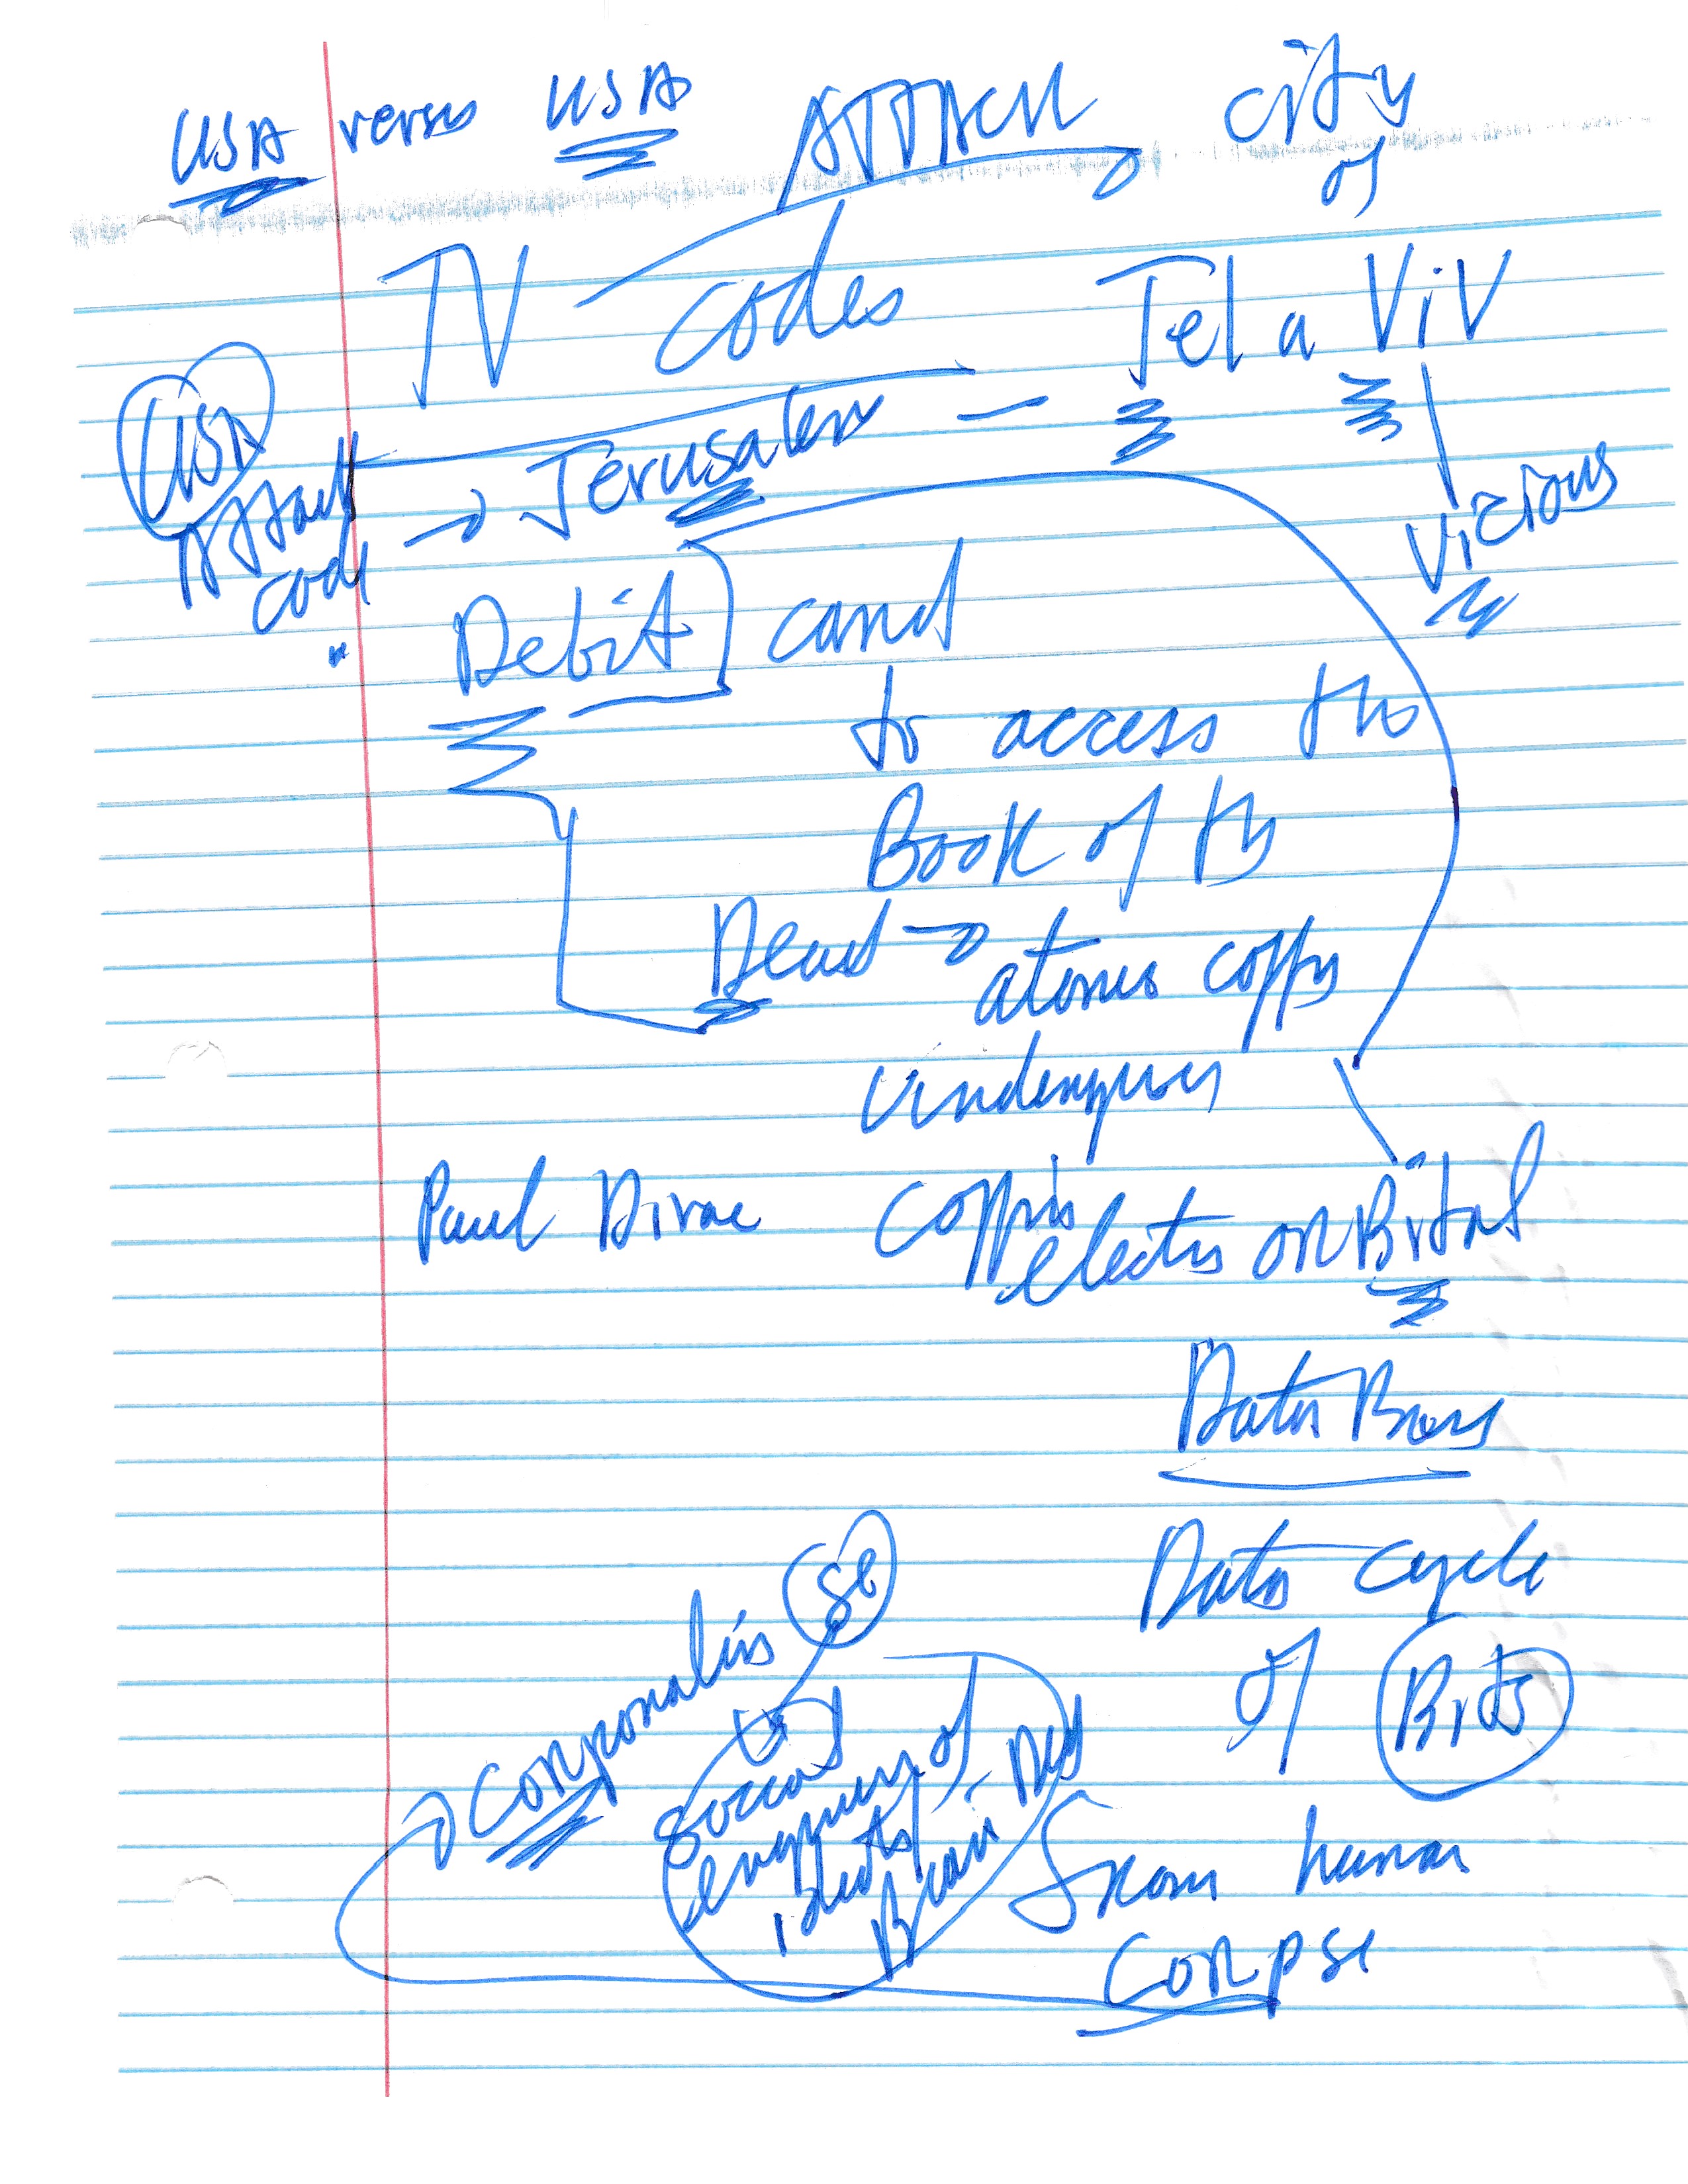 USA versus USA ATTACK city
of
TV codes Tel a ViV
USA
Attack
code
→ Jerusalem —
Vicious
Debit card
to access the
Book of the
Dead → atomic copy
Paul Dirac
electro on Brital
Data Base
Data cycle
of Brits
se
corporalis
to
social
engineers of
idiots
Brain Dead
from human
corpse